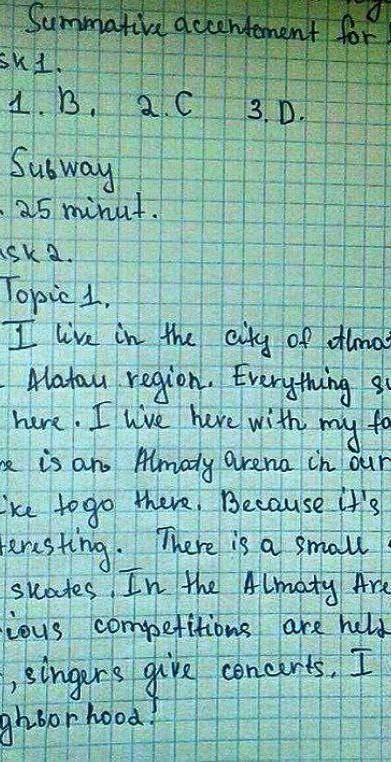 Summative accentement for
sk 1.
1. B. 2. C 3. D.
Subway
. 25 minut.
sk 2.
Topic 1.
I live in the city of Almat
Alatau region. Everything su
here. I live here with my fa
re is an Almaty arena in our
ike to go there. Because it's
teresting. There is a small
skates. In the Almaty Are
ious competitions are held
, singers give concerts. I
ghborhood!